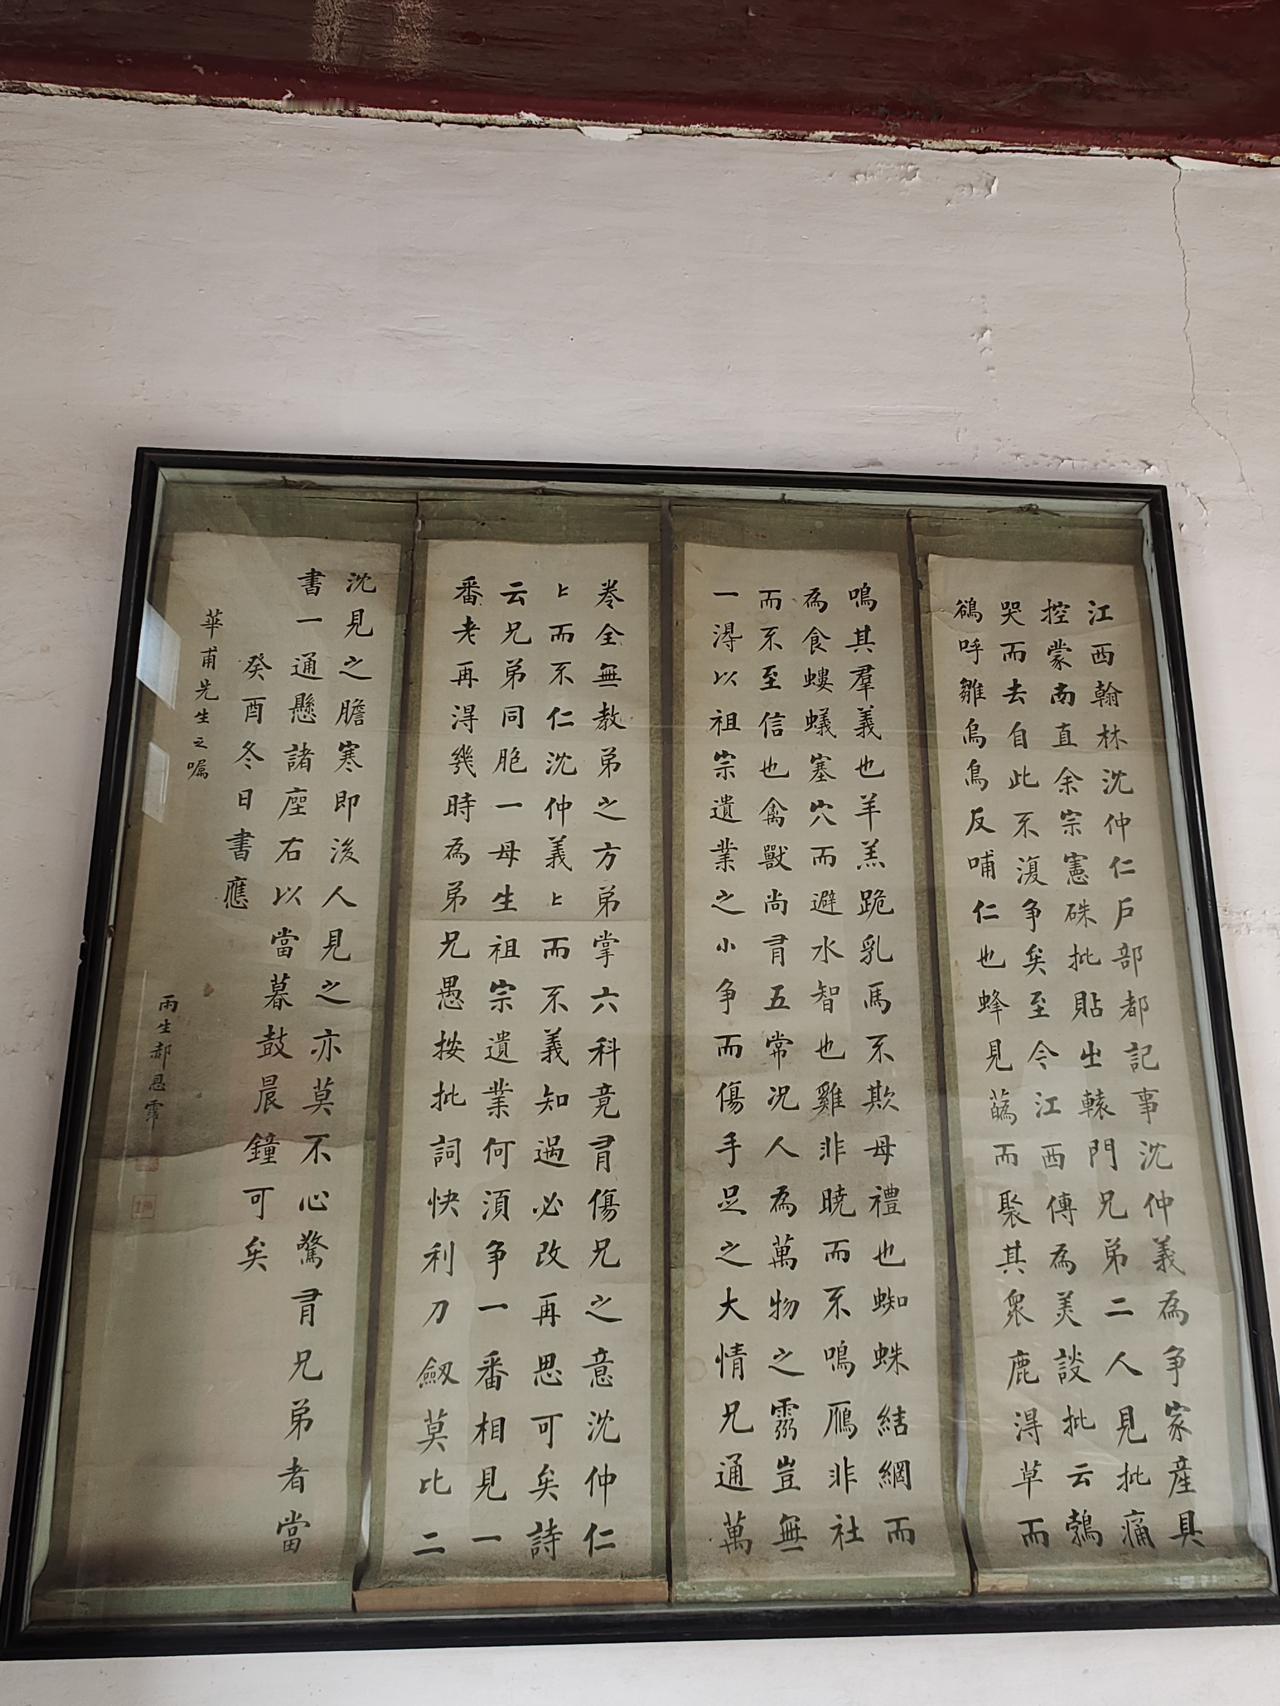 江西翰林沈仲仁戶部都記事沈仲義為争家產具
控蒙南直余宗憲硃批貼出轅門兄弟二人見批痛
哭而去自此不復争矣至今江西傳為美談批云鵓
鴿呼雛烏鳥反哺仁也蜂見蘤而聚其眾鹿得草而
鳴其羣義也羊羔跪乳馬不欺母禮也蜘蛛結網而
為食螻蟻塞穴而避水智也雞非曉而不鳴鴈非社
而不至信也禽獸尚有五常况人為萬物之靈豈無
一得以祖宗遺業之小争而傷手足之大情兄通萬
卷全無教弟之方弟掌六科竟有傷兄之意沈仲仁
仁而不仁沈仲義義而不義知過必改再思可矣詩
云兄弟同胞一母生祖宗遺業何須争一番相見一
番老再得幾時為弟兄愚按批詞快利刀劔莫比二
沈見之膽寒即後人見之亦莫不心驚有兄弟者當
書一通懸諸座右以當暮鼓晨鐘可矣
癸酉冬日書應
華甫先生之嘱
雨生郝恩霈